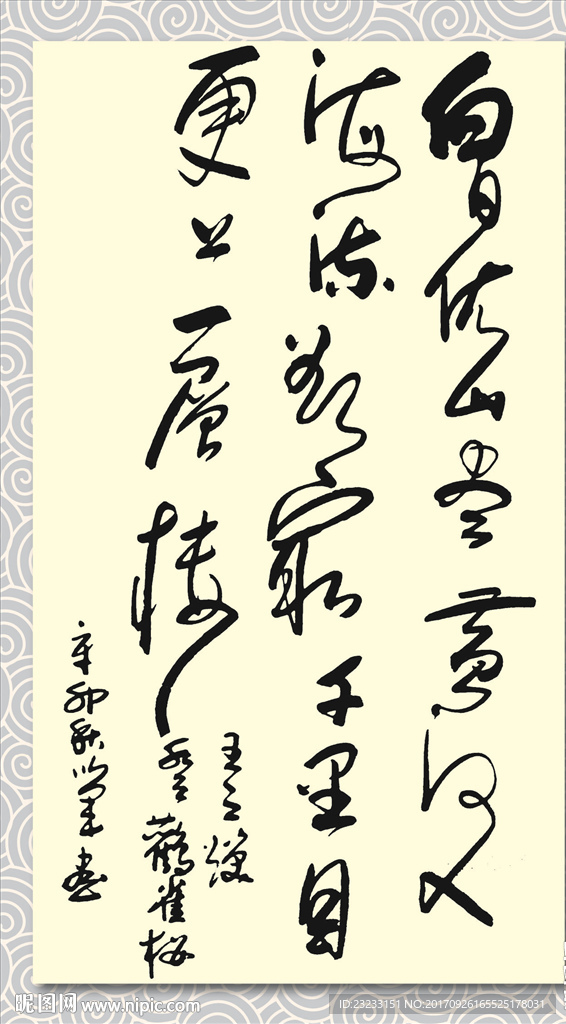 白日依山尽黄河入
海流欲窮千里目
更上一層楼
王之涣
登鸛雀楼
辛卯秋書
昵图网 www.nipic.com
ID:23233151 NO:20170926165525178031